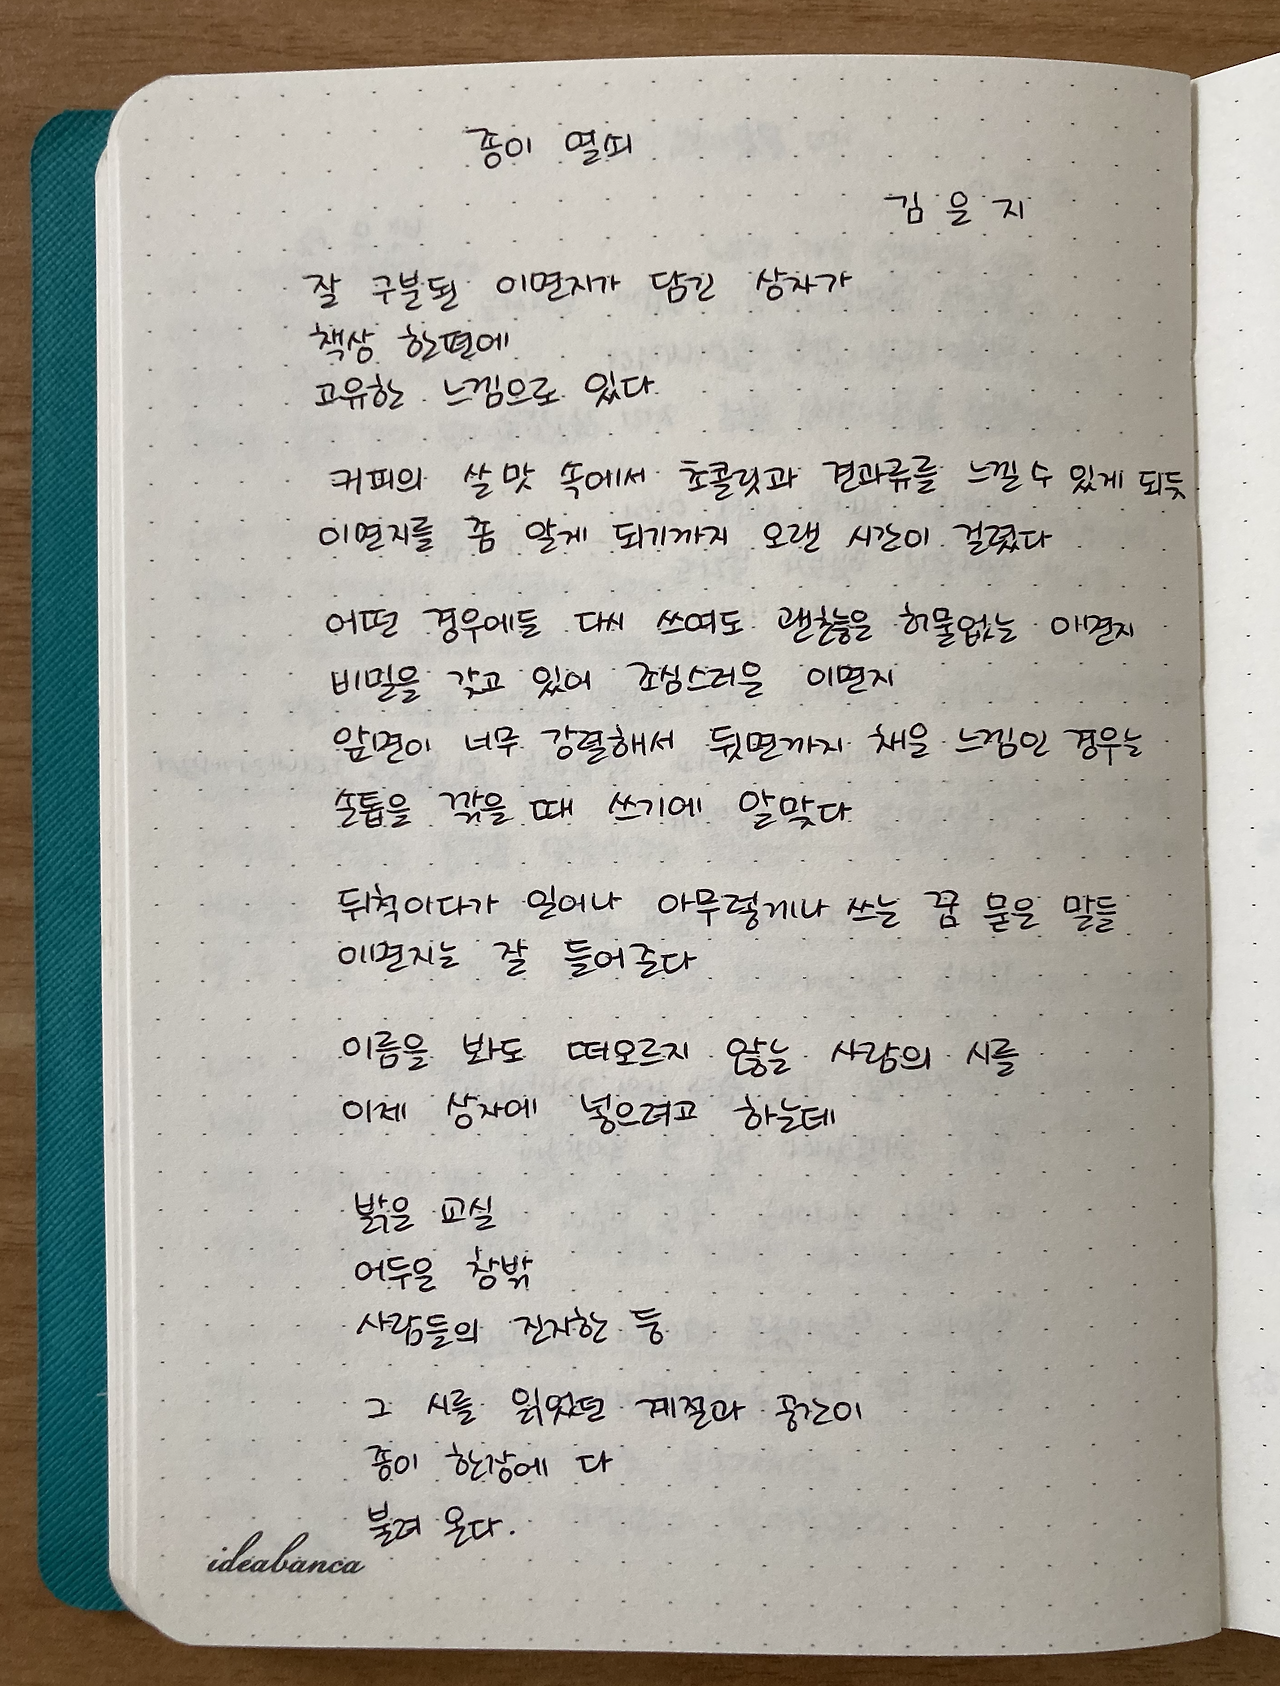 종이 열쇠
김 은 지
잘 구분된 이면지가 담긴 상자가
책상 한편에
고유한 느낌으로 있다.
커피의 쓸 맛 속에서 초콜릿과 견과류를 느낄 수 있게 되듯
이면지를 좀 알게 되기까지 오랜 시간이 걸렸다
어떤 경우에든 다시 쓰여도 괜찮을 허물없는 이면지
비밀을 갖고 있어 조심스러운 이면지
앞면이 너무 강렬해서 뒷면까지 채운 느낌인 경우는
손톱을 깎을 때 쓰기에 알맞다
뒤척이다가 일어나 아무렇게나 쓰는 꿈 묻은 말들
이면지는 잘 들어준다
이름을 봐도 떠오르지 않는 사람의 시를
이제 상자에 넣으려고 하는데
밝은 교실
어두운 창밖
사람들의 진지한 등
그 시를 읽었던 계절과 공간이
종이 한장에 다
불려 온다.
ideabanca